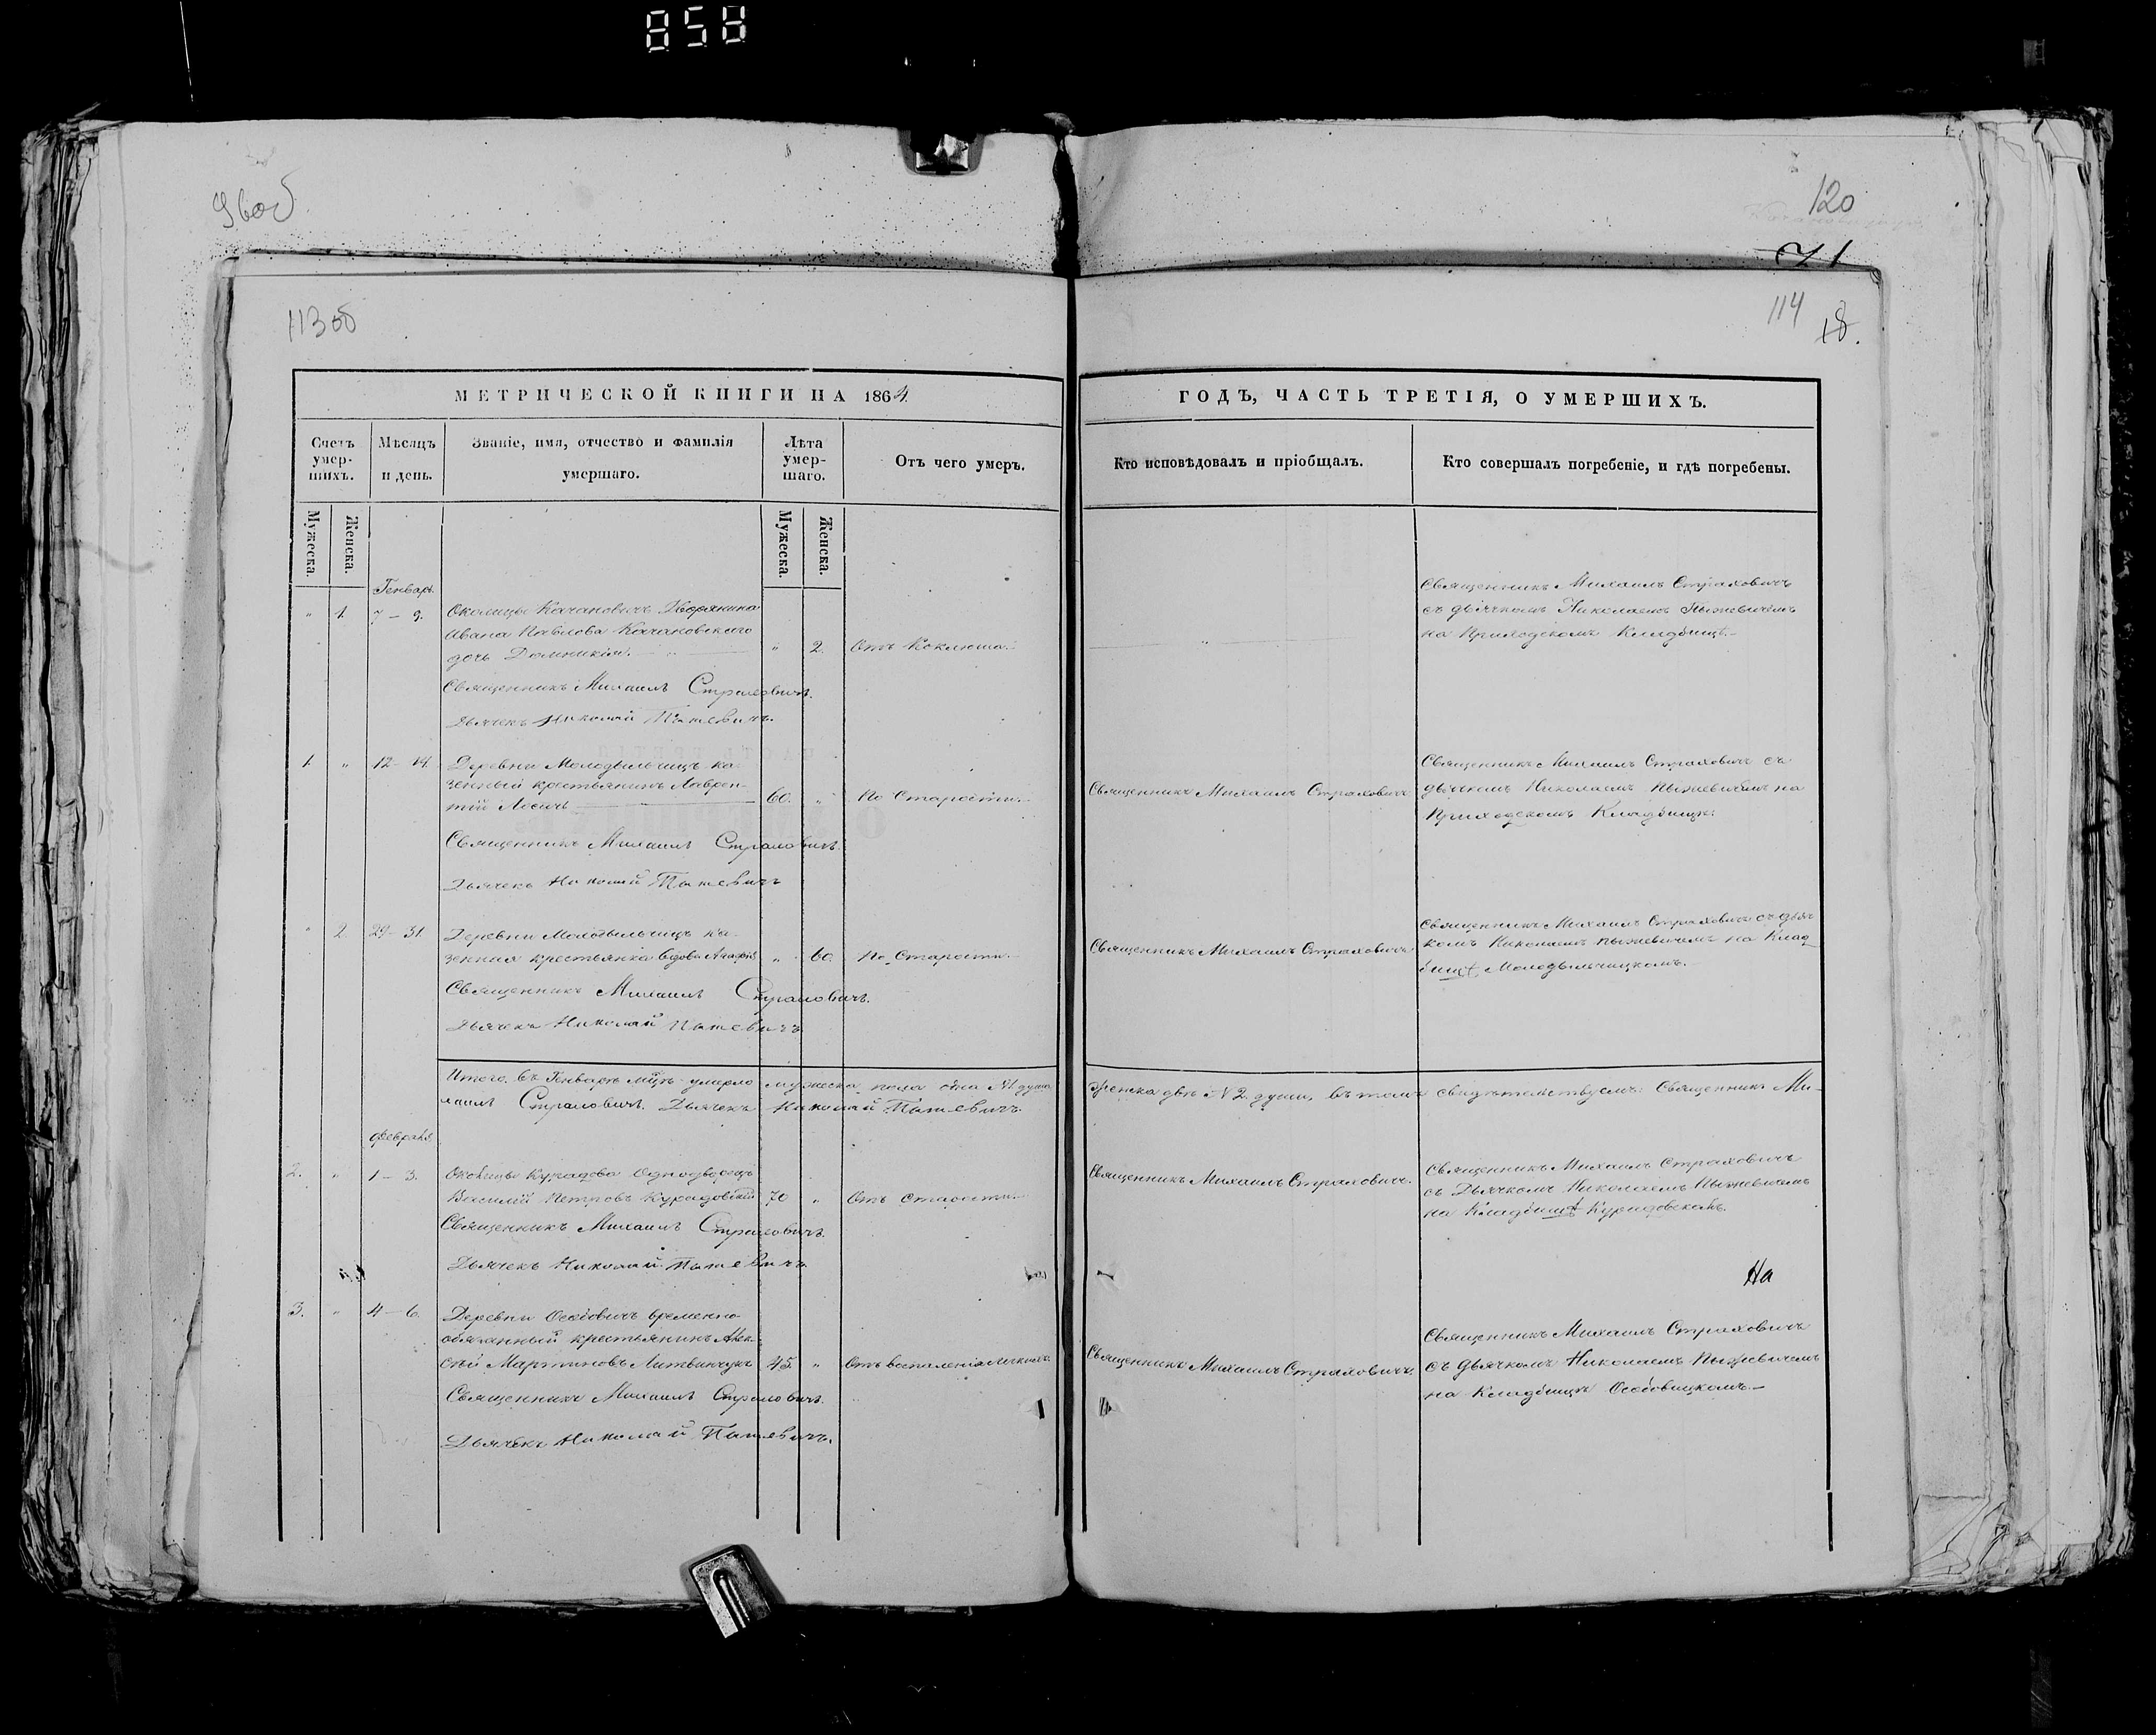 858
120
71
113об
114
18.
МЕТРИЧЕСКОЙ КНИГИ НА 1864
ГОДЪ, ЧАСТЬ ТРЕТІЯ, О УМЕРШИХЪ.
Счетъ умер-
шихъ.
Мѣсяцъ
и день.
Званіе, имя, отчество и фамилія
умершаго.
Лѣта
умер-
шаго.
Отъ чего умеръ.
Кто исповѣдовалъ и пріобщалъ.
Кто совершалъ погребеніе, и гдѣ погребены.
Мужеска.
Женска.
Мужеска.
Женска.
Генварь.
" 1. 7 – 9. Околицы Качановичъ Дворянина
Ивана Павлова Качановскаго
дочь Домникія. " 2. Отъ Коклюша.
Священникъ Михаилъ Страховичъ.
Дьячекъ Николай Пыжевичъ.
Священникъ Михаилъ Страховичъ
съ дьячкомъ Николаемъ Пыжевичемъ
на Приходскомъ Кладбищѣ.
1. " 12 – 14. Деревни Молодыльчицъ ка-
зенный крестьянинъ Лаврен-
тій 60. " По Старости.
Священникъ Михаилъ Страховичъ.
Дьячекъ Николай Пыжевичъ
Священникъ Михаилъ Страховичъ
Священникъ Михаилъ Страховичъ съ
дьячкомъ Николаемъ Пыжевичемъ на
Приходскомъ Кладбищѣ.
" 2. 29 – 31. Деревни Молодыльчицъ ка-
зенная крестьянка вдова " 60. По Старости.
Священникъ Михаилъ Страховичъ.
Дьячекъ Николай Пыжевичъ
Священникъ Михаилъ Страховичъ
Священникъ Михаилъ Страховичъ съ дьяч
комъ Николаемъ Пыжевичемъ на Клад
бищѣ Молодыльчицкомъ.
Итого въ Генварѣ мцѣ умерло мужеска пола одна №1 душа женска двѣ №2. души, въ томъ свидѣтельствуемъ: Священникъ Ми-
хаилъ Страховичъ. Дьячекъ Николай Пыжевичъ.
Февраля
2. " 1 – 3. Околицы Курадова Однодворецъ
Василій Петровъ Курадовскій 70 " Отъ старости.
Священникъ Михаилъ Страховичъ.
Дьячекъ Николай Пыжевичъ.
Священникъ Михаилъ Страховичъ.
Священникъ Михаилъ Страховичъ
съ Дьячкомъ Николаемъ Пыжевичемъ
на Кладбищѣ Курадовскомъ.
На
3. " 4 – 6. Деревни Особовичъ временно
обязанный крестьянинъ Алек-
сѣй Мартиновъ Литвинчукъ 45. " Отъ воспаленія легкихъ.
Священникъ Михаилъ Страховичъ.
Дьячекъ Николай Пыжевичъ.
Священникъ Михаилъ Страховичъ.
Священникъ Михаилъ Страховичъ
съ дьячкомъ Николаемъ Пыжевичемъ
на Кладбищѣ Особовицкомъ.